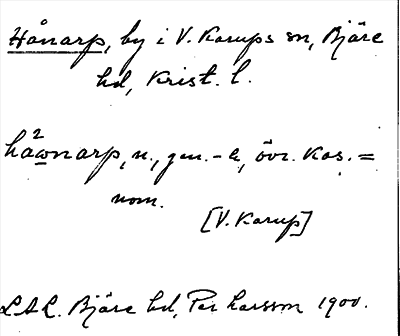 Hånarp, by i V. Karups sn, Bjäre
hd, Krist. l.
hå²wnarp, n., gen. -a, övr. kas. =
nom.
[V. Karup]
LAL. Bjäre hd, Per Larsson 1900.